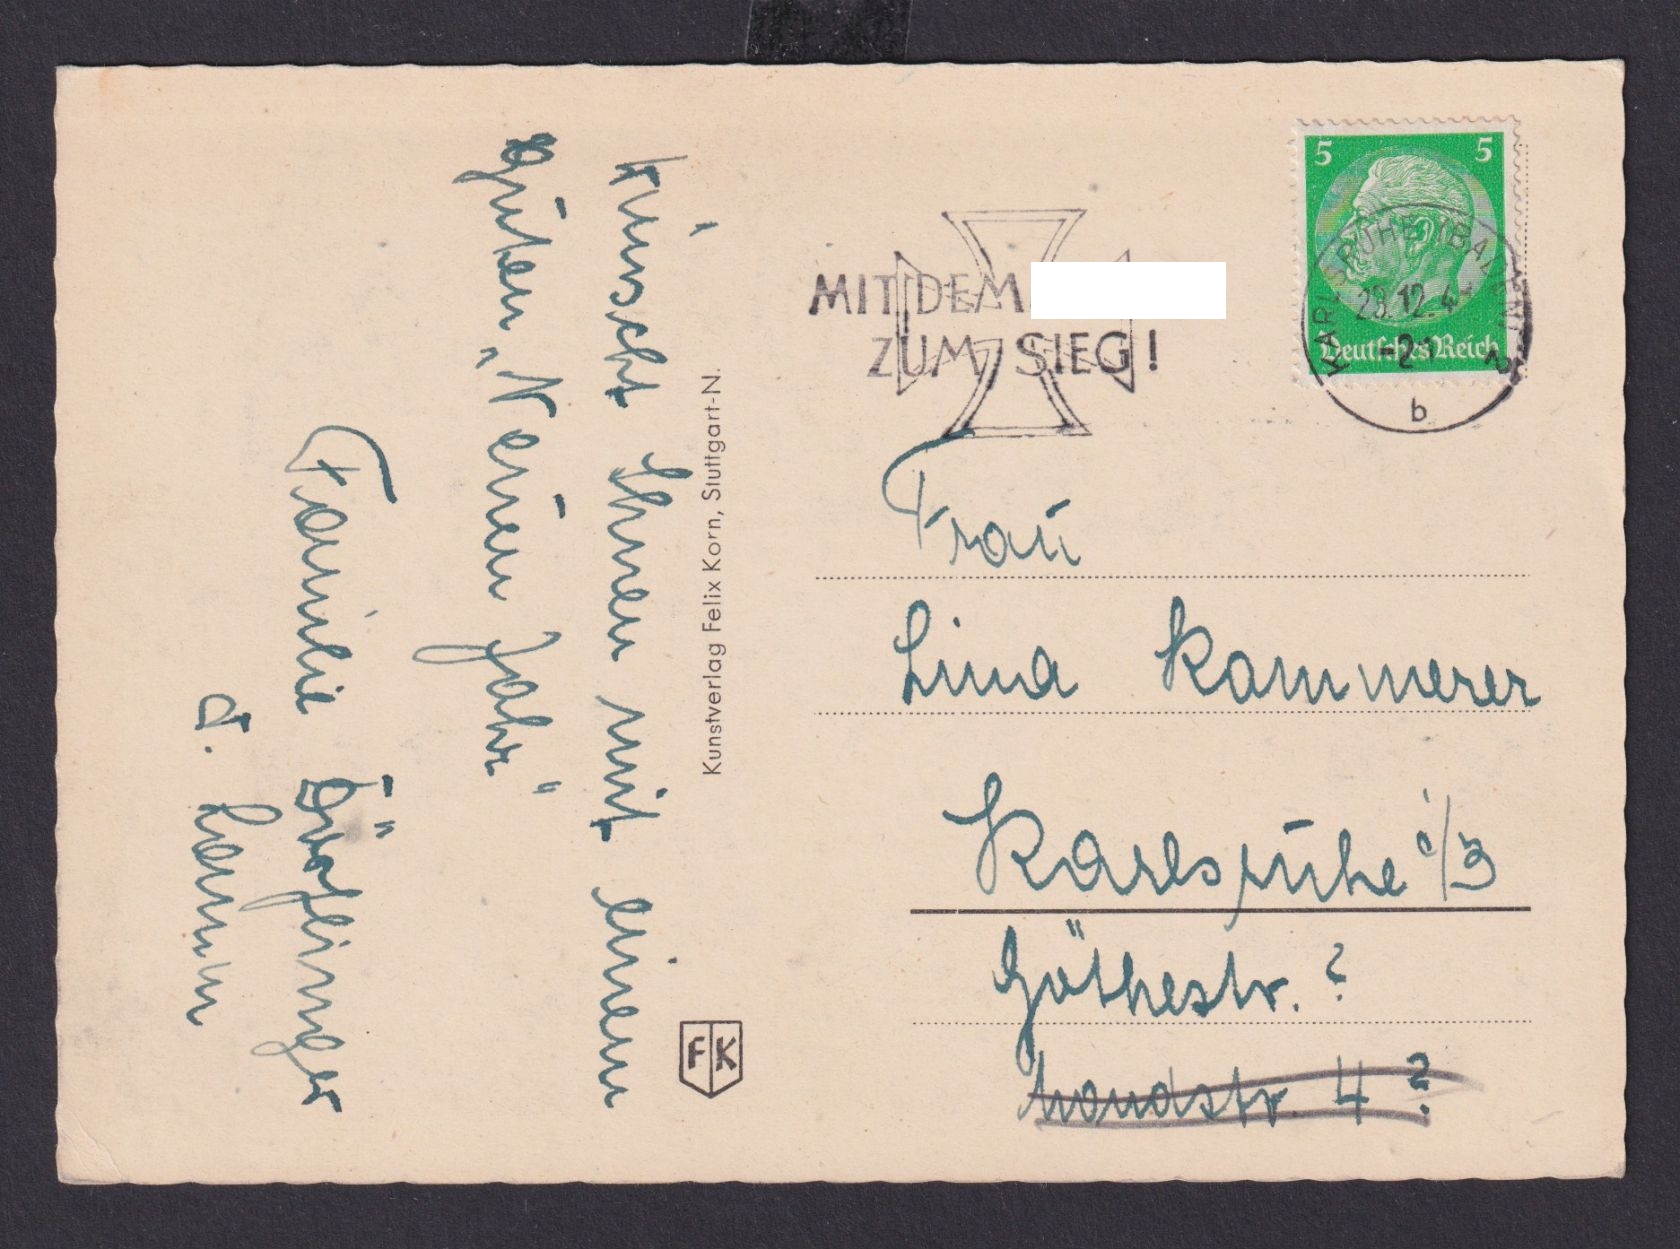 wünscht Ihnen mit einem
guten „Neuen Jahr"
Familie
Kunstverlag Felix Korn, Stuttgart-N.
FK
MIT DEM
ZUM SIEG!
5 5
Deutsches Reich
KARLSRUHE (BADEN)
12.4
b
Frau
Lina Kammerer
Karlsruhe i/B
Göthestr. ?
4 ?